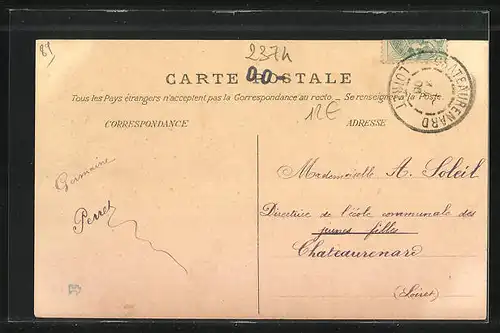 89
237h
00-
CARTE POSTALE
Tous les Pays étrangers n'acceptent pas la Correspondance au recto. - Se renseigner à la Poste.
12€
CORRESPONDANCE
ADRESSE
CHATEAURENARD
LOIRET
Mademoiselle A. Soleil
Germaine
Perret
Directrice de l'école communale des
jeunes filles
Chateaurenard
(Loiret)